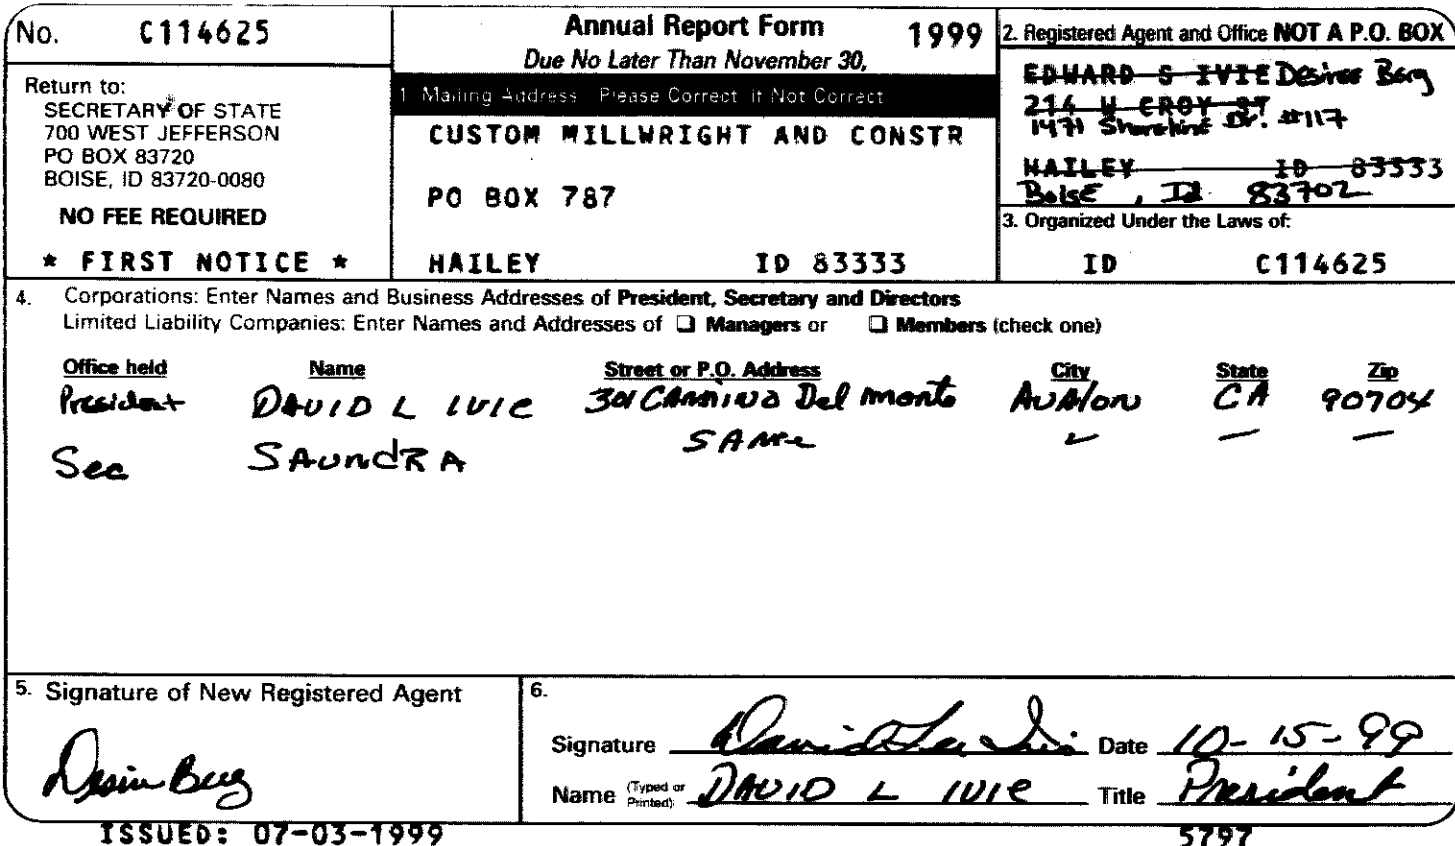 No. C114625
Return to:
SECRETARY OF STATE
700 WEST JEFFERSON
PO BOX 83720
BOISE, ID 83720-0080
NO FEE REQUIRED
* FIRST NOTICE *
Annual Report Form 1999
Due No Later Than November 30,
1 Mailing Address Please Correct if Not Correct
CUSTOM MILLWRIGHT AND CONSTR
PO BOX 787
HAILEY ID 83333
2. Registered Agent and Office NOT A P.O. BOX
EDWARD S IVIE Desiree Berg
214 W CROY ST
1471 Shoreline Dr. #117
HAILEY ID 83333
Boise, Id 83702
3. Organized Under the Laws of:
ID C114625
4. Corporations: Enter Names and Business Addresses of President, Secretary and Directors
Limited Liability Companies: Enter Names and Addresses of ❏ Managers or ❏ Members (check one)
Office held Name Street or P.O. Address City State Zip
President DAVID L IVIE 301 CAMINO Del monte AVALON CA 90704
Sec SAUNDRA SAME
5. Signature of New Registered Agent
6.
Signature Date 10-15-99
Name (Typed or Printed): DAVID L IVIE Title President
ISSUED: 07-03-1999
5797